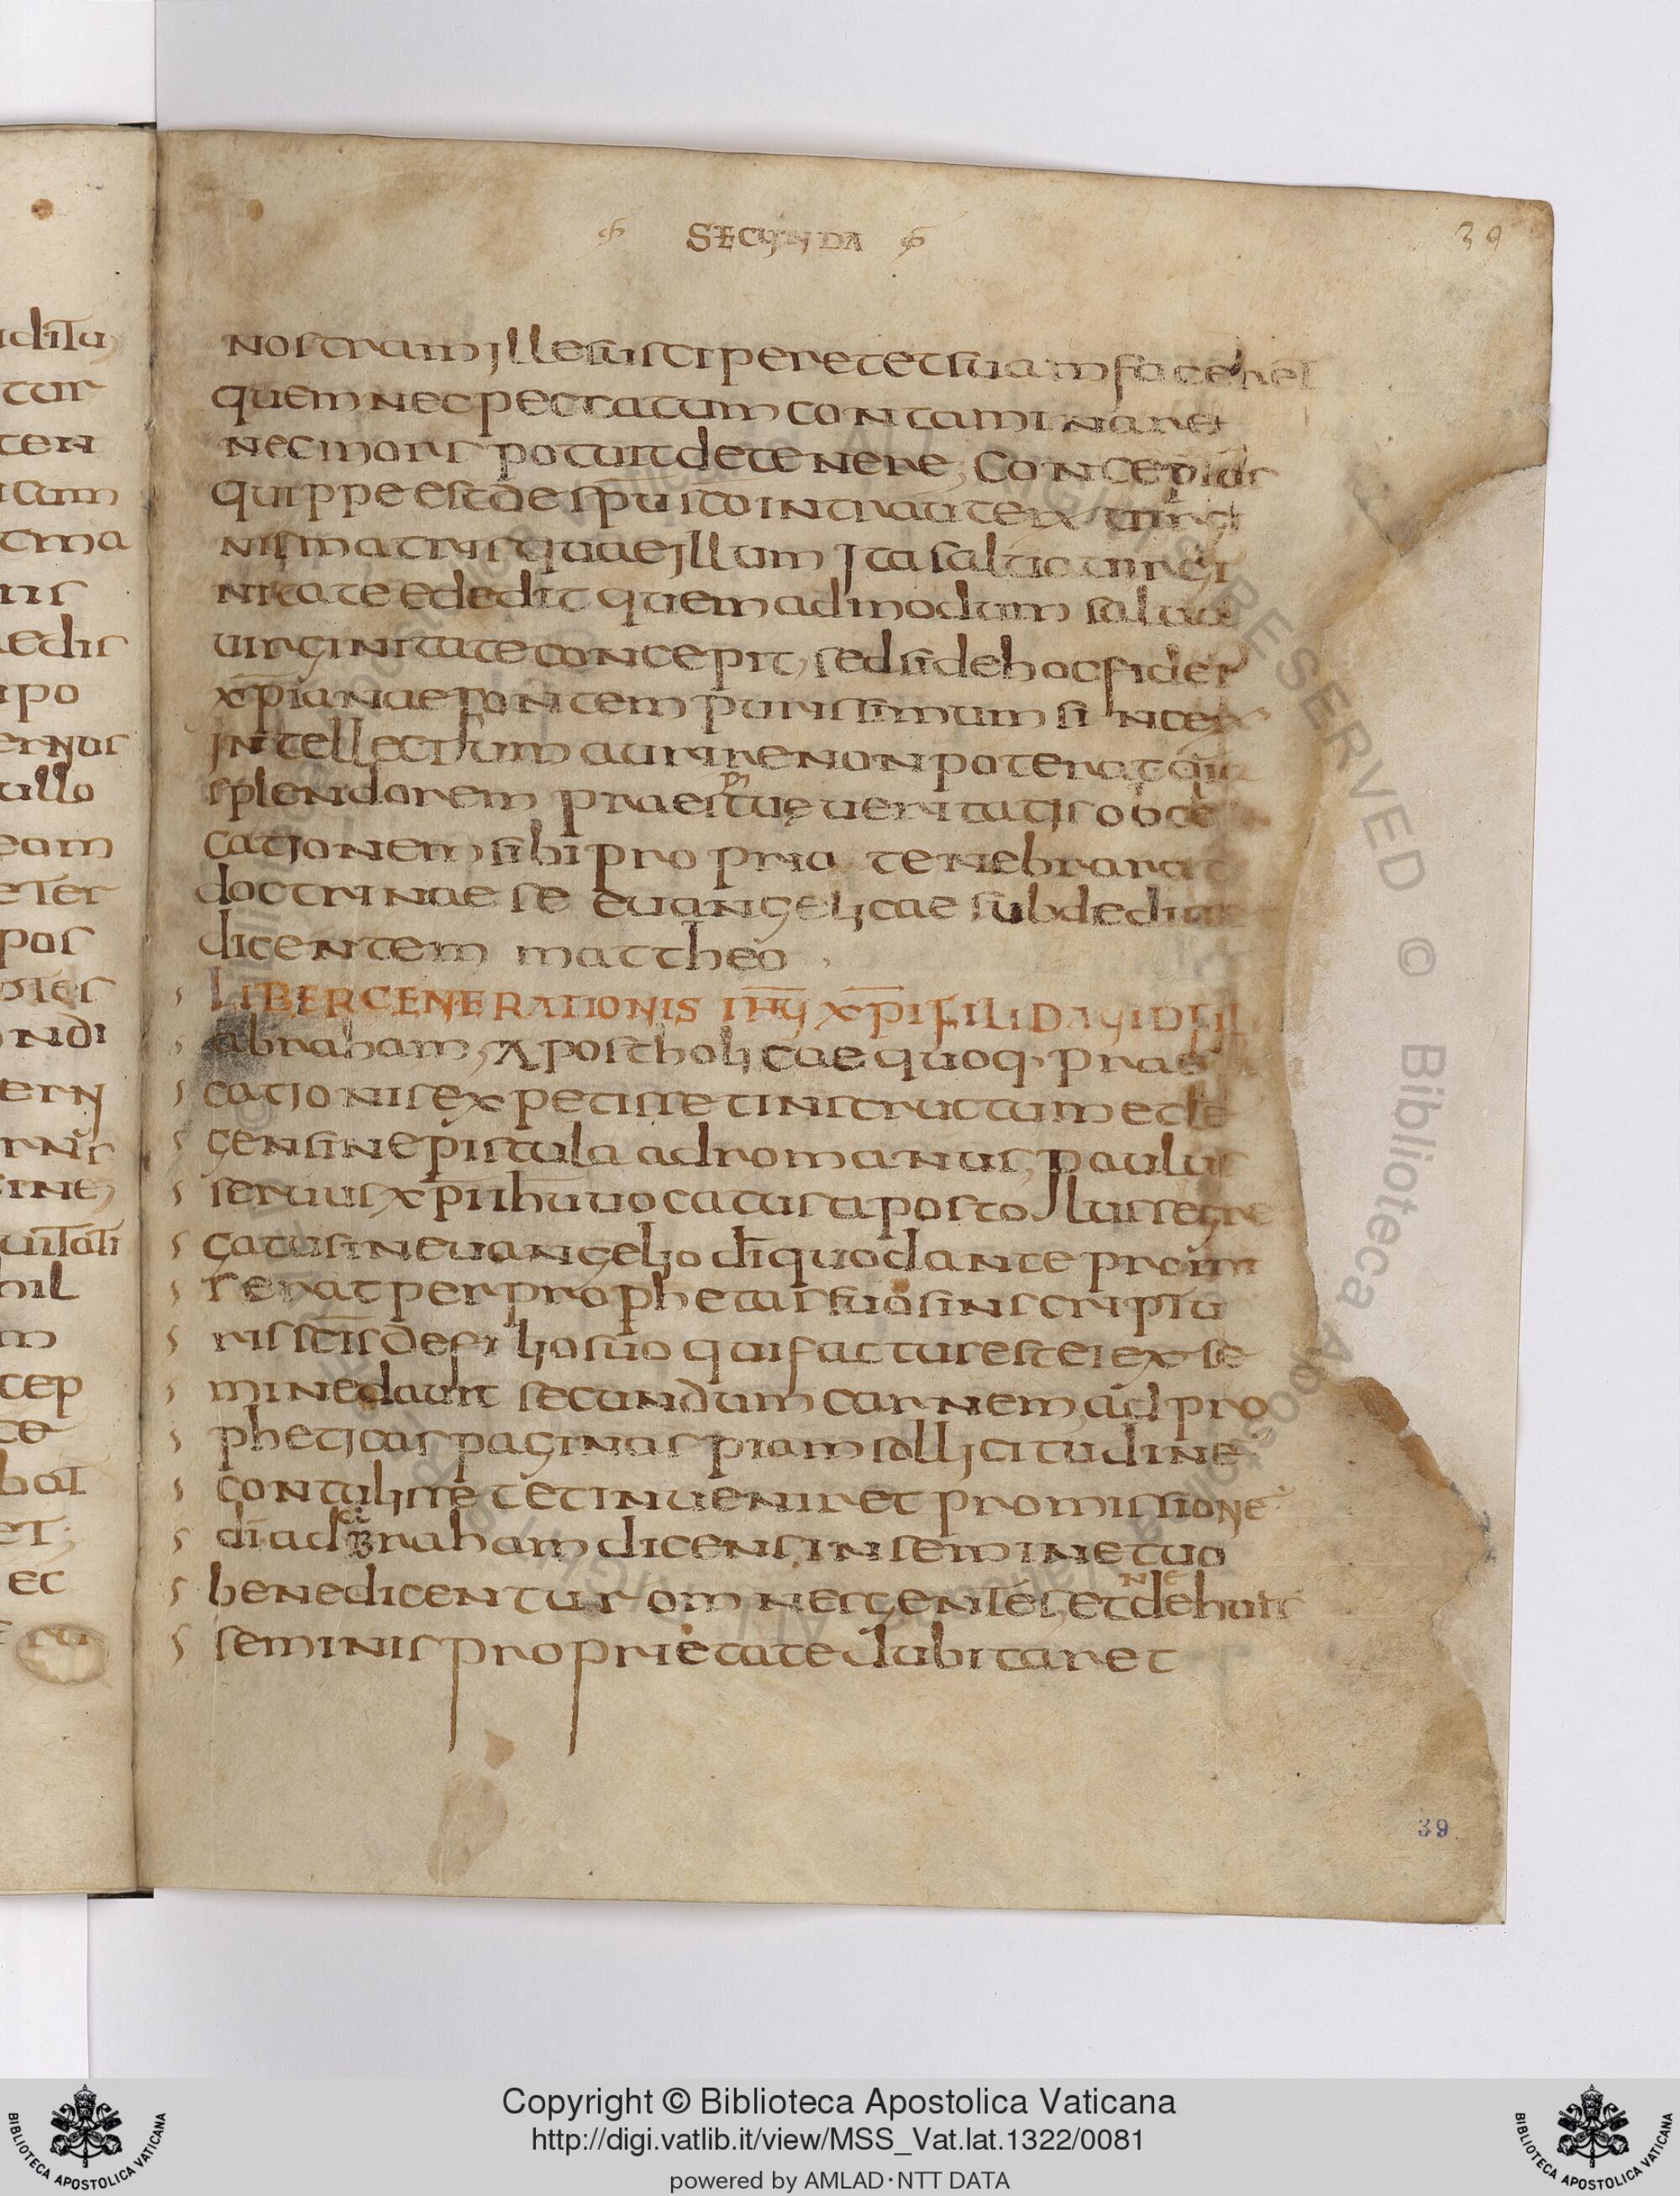 SECUNDA
39
nostram illesusciperetetsuamfaceret
quemnecpeccatumcontaminaret
necmors potuitdetenere, Conceptus
quippeestdespuscointrautexuirgi
nismatrisquaeillum Itasalua uirgi
nitateededit quemadmodum salua
uirginitateconcepit, sedsidehocfidei
xp̄ianaefontem purissimumsi ncer
intellectumaurirenonpoteratquia
splendorem praesptuę ueritatisobce
cationemsibipropria tenebrarat
doctrinaese euangelicae subdedi
dicentem mattheo
LIBERGENERATIONIS IHU XPIFILIDAVIDFILI
abraham, Apostholicae quoq· prae
cationisexpetissetinstructumetle
gensinepistula adromanus, paulus
seruusxp̄iih̄uuocatusaposto lussegre
gatusineuangelio dīquodante promi
seratperprophetassuosinscriptu
risscīsdefiliosuo quifacturesteiexse
minedauit secundumcarnem, adpro
pheticaspaginaspiamsollicitudine
contulissetetinueniret promissione
dīadabrahamdicens, insemine tuo
benedicentur omnesgentes, etnedehuius
seminisproprietatedubitaret
39
Copyright © Biblioteca Apostolica Vaticana
http://digi.vatlib.it/view/MSS_Vat.lat.1322/0081
powered by AMLAD·NTT DATA
BIBLIOTECA APOSTOLICA VATICANA
BIBLIOTECA APOSTOLICA VATICANA